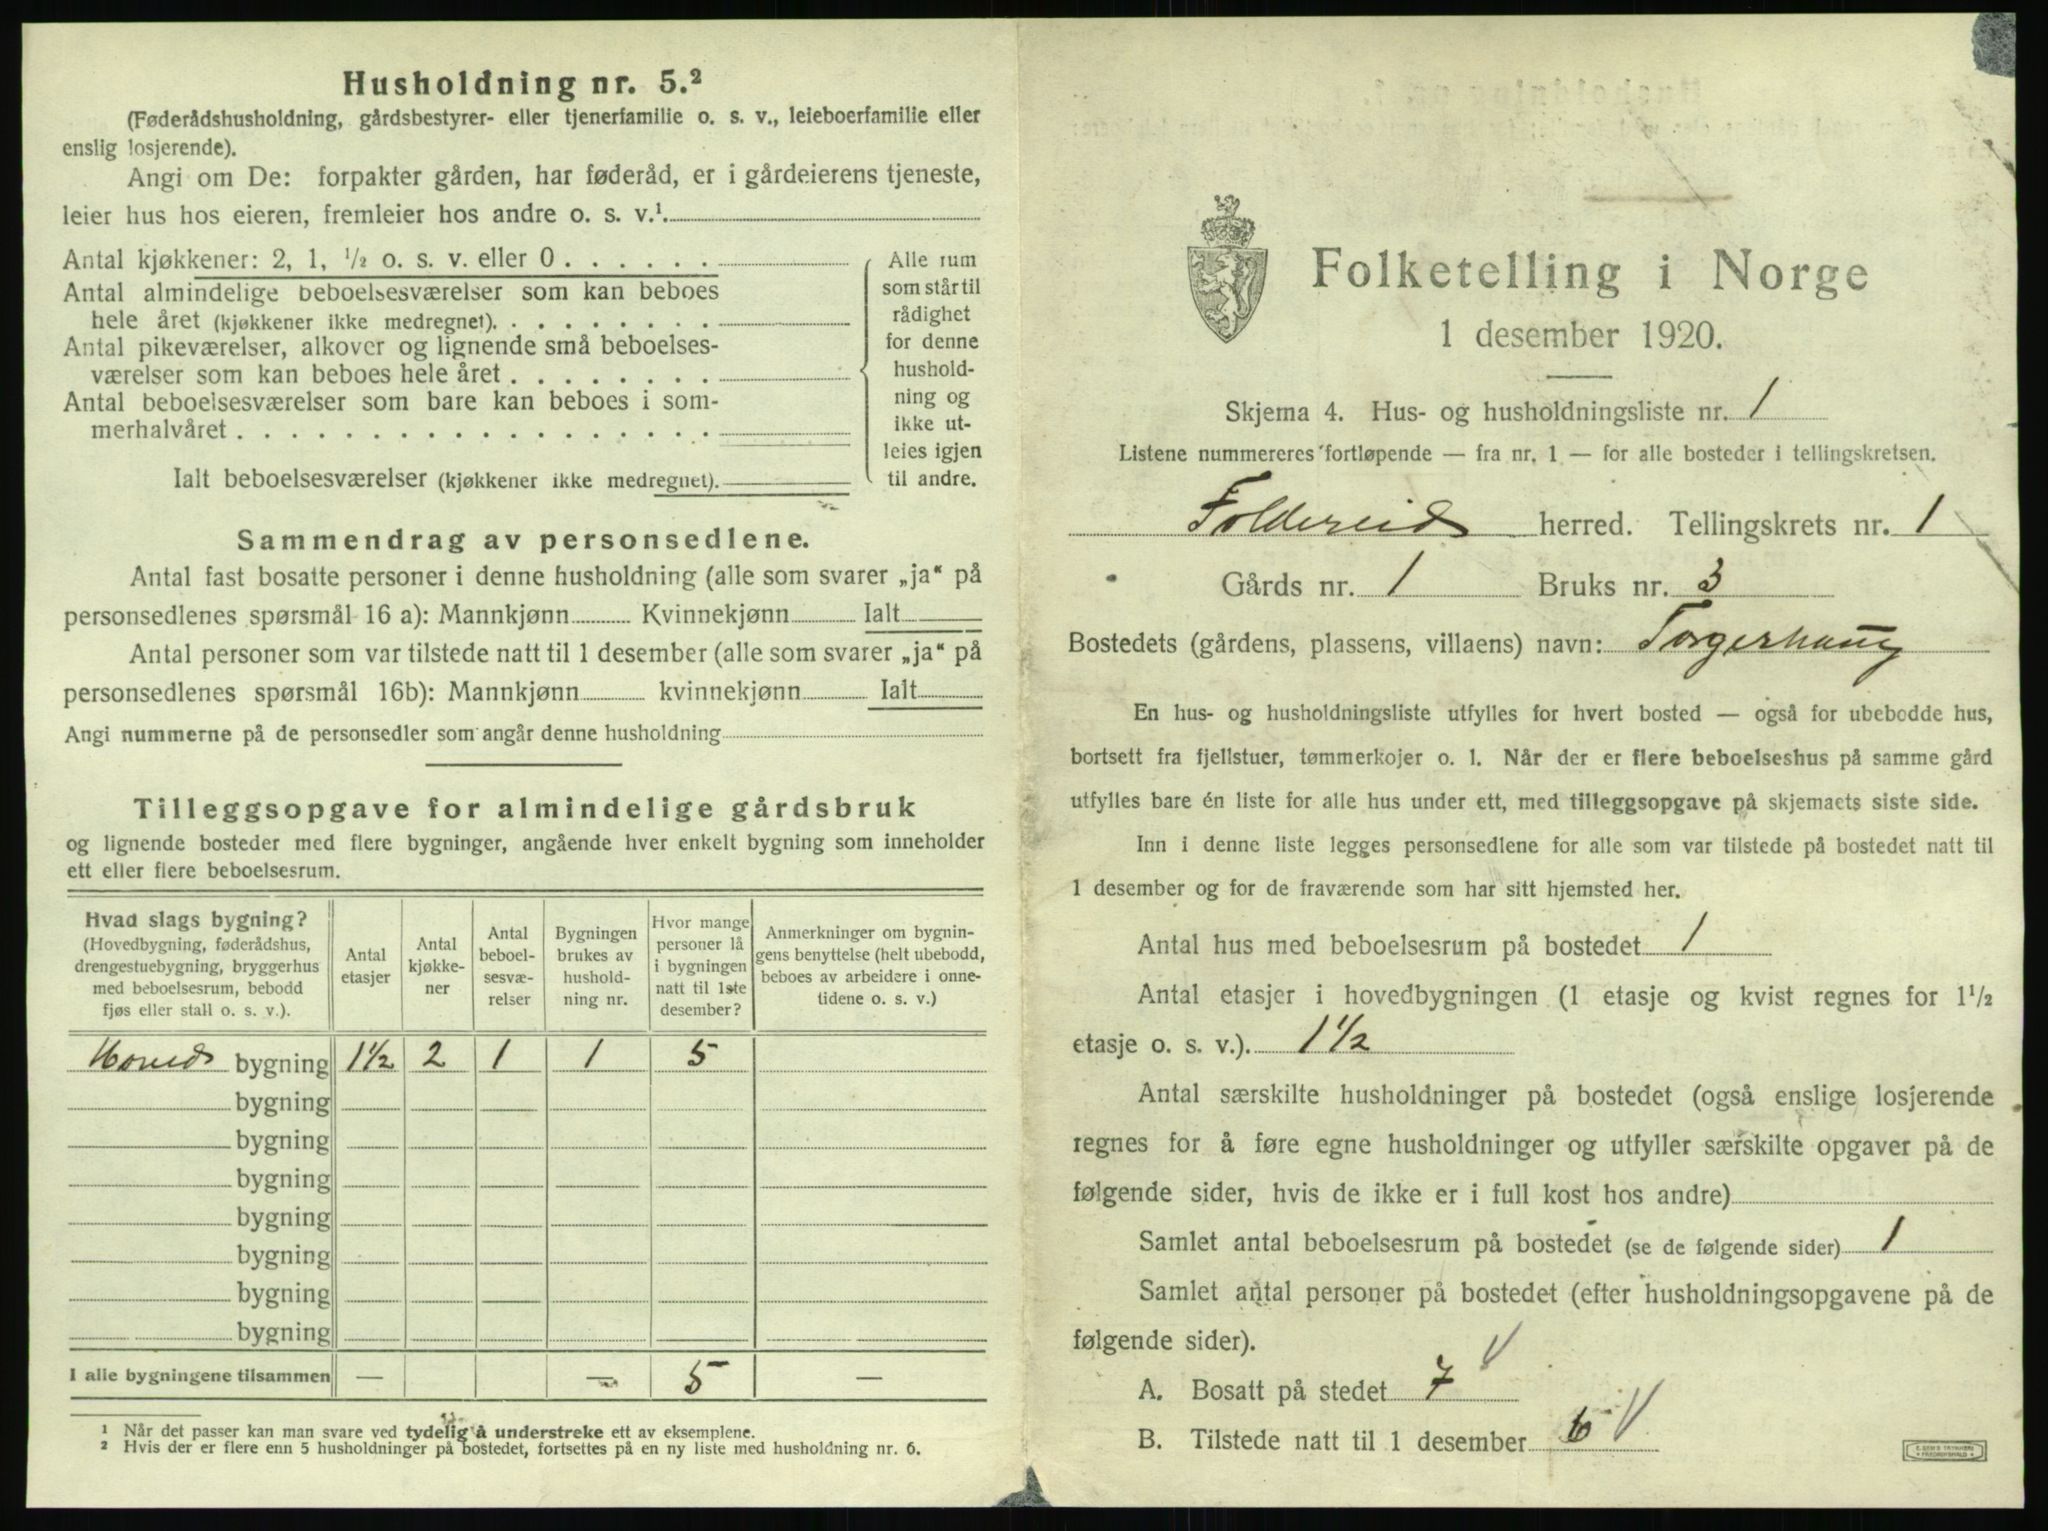 Husholdning nr. 5.²
(Føderådshusholdning, gårdsbestyrer- eller tjenerfamilie o. s. v., leieboerfamilie eller
enslig losjerende).
Angi om De: forpakter gården, har føderåd, er i gårdeierens tjeneste,
leier hus hos eieren, fremleier hos andre o. s. v.¹
Antal kjøkkener: 2, 1, ½ o. s. v. eller 0
Antal almindelige beboelsesværelser som kan beboes
hele året (kjøkkener ikke medregnet).
Antal pikeværelser, alkover og lignende små beboelses-
værelser som kan beboes hele året
Antal beboelsesværelser som bare kan beboes i som-
merhalvåret
Ialt beboelsesværelser (kjøkkener ikke medregnet).
Alle rum
som står til
rådighet
for denne
hushold-
ning og
ikke ut-
leies igjen
til andre.
Sammendrag av personsedlene.
Antal fast bosatte personer i denne husholdning (alle som svarer „ja“ på
personsedlenes spørsmål 16 a): Mannkjønn Kvinnekjønn Ialt
Antal personer som var tilstede natt til 1 desember (alle som svarer „ja“ på
personsedlenes spørsmål 16b): Mannkjønn kvinnekjønn Ialt
Angi nummerne på de personsedler som angår denne husholdning
Tilleggsopgave for almindelige gårdsbruk
og lignende bosteder med flere bygninger, angående hver enkelt bygning som inneholder
ett eller flere beboelsesrum.
Hvad slags bygning?
(Hovedbygning, føderådshus,
drengestuebygning, bryggerhus
med beboelsesrum, bebodd
fjøs eller stall o. s. v.).
Antal
etasjer
Antal
kjøkke-
ner
Antal
beboel-
sesvæ-
relser
Bygningen
brukes av
hushold-
ning nr.
Hvor mange
personer lå
i bygningen
natt til 1ste
desember?
Anmerkninger om bygnin-
gens benyttelse (helt ubebodd,
beboes av arbeidere i onne-
tidene o. s. v.)
Hoved bygning 1½ 2 1 1 5
bygning
bygning
bygning
bygning
bygning
bygning
bygning
I alle bygningene tilsammen — — 5 —
¹ Når det passer kan man svare ved tydelig å understreke ett av eksemplene.
² Hvis der er flere enn 5 husholdninger på bostedet, fortsettes på en ny liste med husholdning nr. 6.
Folketelling i Norge
1 desember 1920.
Skjema 4. Hus- og husholdningsliste nr. 1
Listene nummereres fortløpende — fra nr. 1 — for alle bosteder i tellingskretsen.
Foldereid herred. Tellingskrets nr. 1
Gårds nr. 1 Bruks nr. 3
Bostedets (gårdens, plassens, villaens) navn: Torgerhaug
En hus- og husholdningsliste utfylles for hvert bosted — også for ubebodde hus,
bortsett fra fjellstuer, tømmerkojer o. l. Når der er flere beboelseshus på samme gård
utfylles bare én liste for alle hus under ett, med tilleggsopgave på skjemaets siste side.
Inn i denne liste legges personsedlene for alle som var tilstede på bostedet natt til
1 desember og for de fraværende som har sitt hjemsted her.
Antal hus med beboelsesrum på bostedet 1
Antal etasjer i hovedbygningen (1 etasje og kvist regnes for 1½
etasje o. s. v.). 1½
Antal særskilte husholdninger på bostedet (også enslige losjerende
regnes for å føre egne husholdninger og utfyller særskilte opgaver på de
følgende sider, hvis de ikke er i full kost hos andre)
Samlet antal beboelsesrum på bostedet (se de følgende sider) 1
Samlet antal personer på bostedet (efter husholdningsopgavene på de
følgende sider).
A. Bosatt på stedet 7
B. Tilstede natt til 1 desember 6